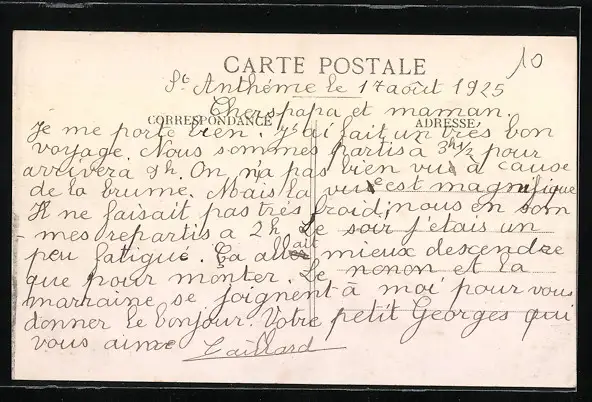 10
CARTE POSTALE
St Anthème le 17 août 1925
Chers papa et maman.
CORRESPONDANCE ADRESSE
Je me porte bien. J'ai fait un très bon
voyage. Nous sommes partis à 3h1/2 pour
arriver a 9h. On n'a pas bien vu à cause
de la brume. Mais la vue est magnifique
Il ne faisait pas très froid; nous en som
mes repartis a 2h Le soir j'étais un
peu fatigué. Ça allait mieux descendre
que pour monter. Le nonon et la
marraine se joignent à moi pour vous
donner le bonjour. Votre petit Georges qui
vous aime Taillard